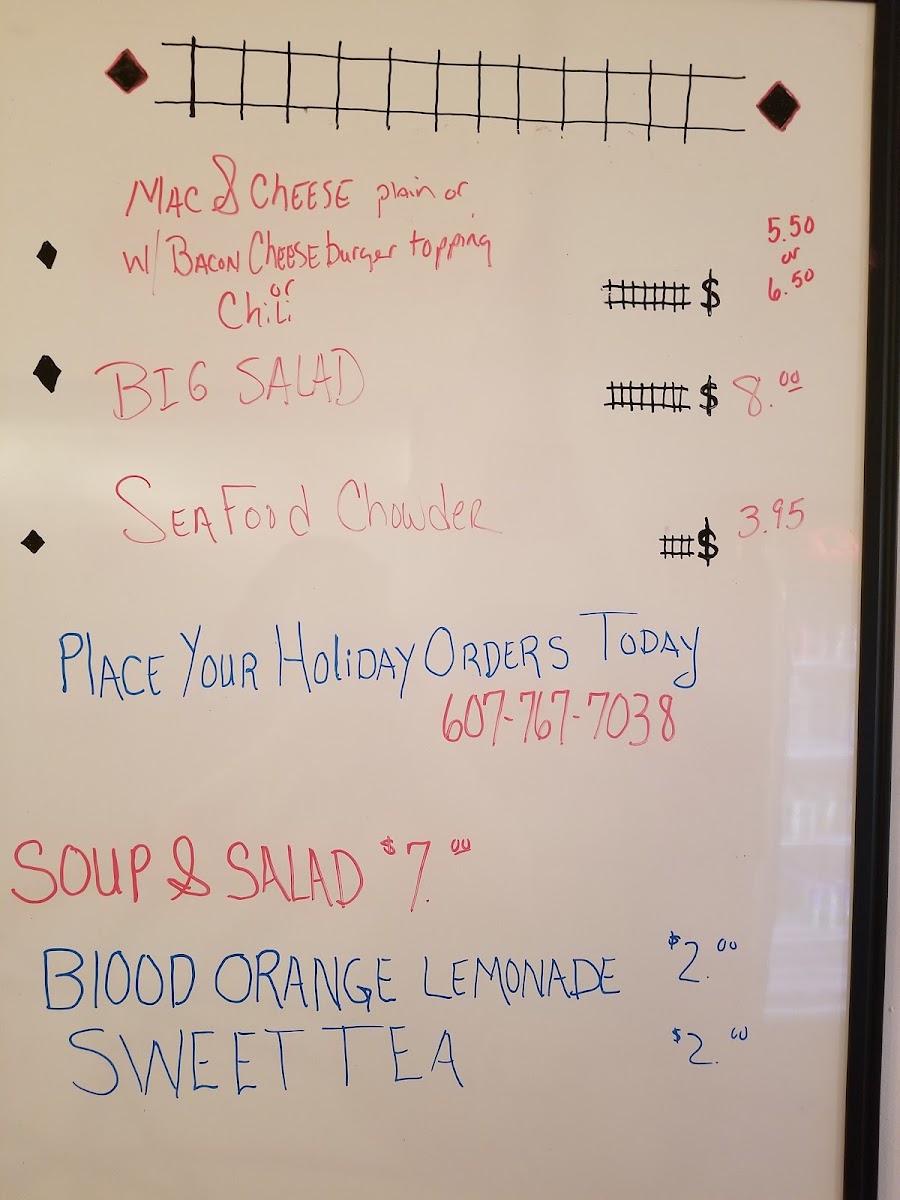 MAC & CHEESE plain or
W/ BACON CHEESEburger topping
or
ChiLi
$ 5.50
or
6.50
BIG SALAD $ 8.00
SEAFOOd ChowdER $ 3.95
PlACE YOUR HOliDAY ORDERS TODAY
607-767-7038
SOUP & SALAD $7.00
BlOOD ORANGE LEMONADE $2.00
SWEET TEA $2.00